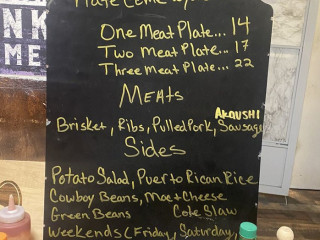 Plate Come
One Meat Plate... 14
Two Meat Plate... 17
Three Meat Plate... 22
Meats
AKAUSHI
Brisket, Ribs, Pulled Pork, Sausage
Sides
Potato Salad, Puerto Rican Rice
Cowboy Beans, Mac + Cheese
Green Beans Cole Slaw
Weekends (Friday, Saturday,
NK
ME